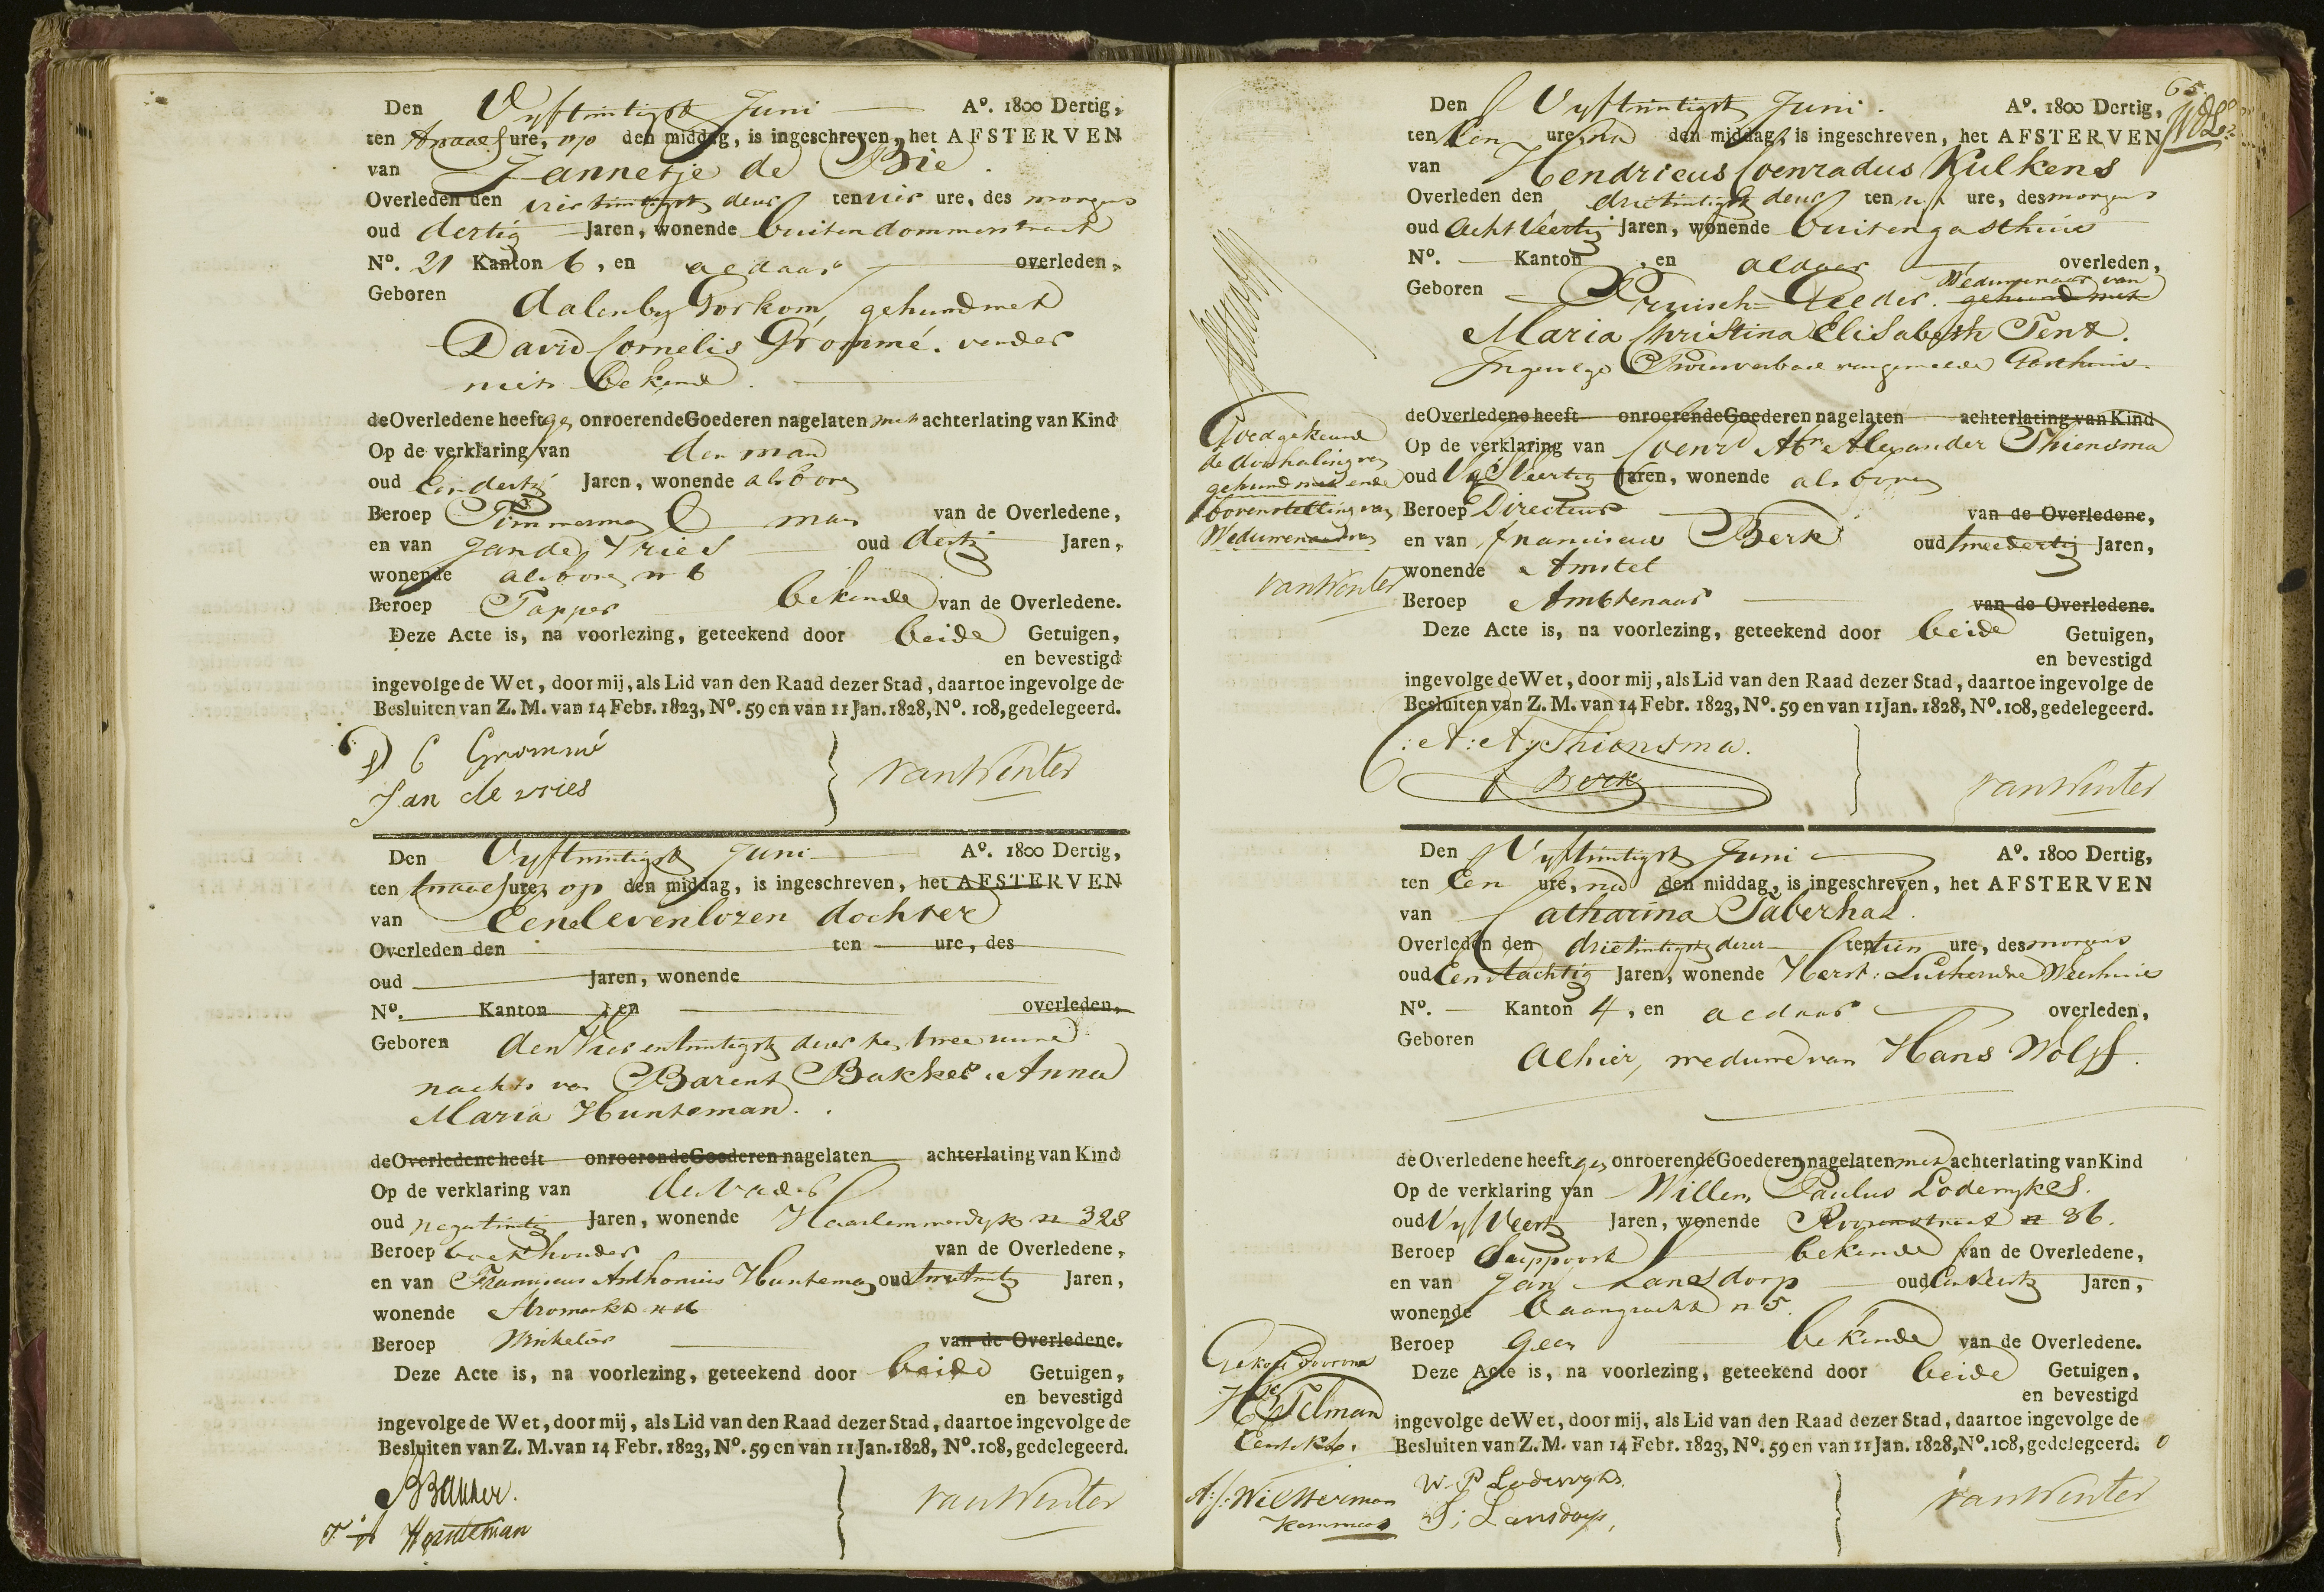 Den Vyftwintigst Juni A°. 1800 Dertig,
ten twaalf ure, op den middag, is ingeschreven, het AFSTERVEN
van Jannetje de Bie.
Overleden den vier twintigst deser ten vier ure, des morgens
oud dertig Jaren, wonende buiten dommerstraat
N°. 21 Kanton 6, en aldaar overleden,
Geboren dalem by Gorkom, gehuwd met
David Cornelis Grommé. verder
niet bekend.
de Overledene heeft gn onroerende Goederen nagelaten met achterlating van Kind
Op de verklaring van den man
oud Een dertig Jaren, wonende als boven
Beroep Timmerman man van de Overledene,
en van Jan de Vries oud dertig Jaren,
wonende als boven n 6
Beroep Tapper bekende van de Overledene.
Deze Acte is, na voorlezing, geteekend door beide Getuigen,
en bevestigd
ingevolge de Wet, door mij, als Lid van den Raad dezer Stad, daartoe ingevolge de
Besluiten van Z. M. van 14 Febr. 1823, N°. 59 en van 11 Jan. 1828, N°. 108, gedelegeerd.
D C Grommé
Jan de vries
van Winter
Den Vyftwintigst Juni A°. 1800 Dertig,
ten twaalf ure, op den middag, is ingeschreven, het AFSTERVEN
van Een levenlozen dochter
Overleden den ten ure, des
oud Jaren, wonende
N°. Kanton , en overleden,
Geboren den vier en twintigst deser ten twee uure
nachts van Barent Bakker. Anna
Maria Hunteman.
de Overledene heeft onroerende Goederen nagelaten achterlating van Kind
Op de verklaring van de Vader
oud negentwintig Jaren, wonende Haarlemmerdyk n 328
Beroep boekhouder van de Overledene,
en van Franciscus Anthonius Hunteman oud Jaren,
wonende Stromarkt n 16
Beroep Winkelier van de Overledene.
Deze Acte is, na voorlezing, geteekend door beide Getuigen,
en bevestigd
ingevolge de Wet, door mij, als Lid van den Raad dezer Stad, daartoe ingevolge de
Besluiten van Z. M. van 14 Febr. 1823, N°. 59 en van 11 Jan. 1828, N°. 108, gedelegeerd.
BBakker.
F A Hunteman
van Winter
65.
Den Vyftwintigst Juni. A°. 1800 Dertig,
ten Een ure, na den middag, is ingeschreven, het AFSTERVEN
van Hendricus Coenradus Kulkens
Overleden den drietwintigst deser ten ure, des morgens
oud Acht Veertig Jaren, wonende buitengasthuis
N°. Kanton , en aldaar overleden,
Geboren Pruisch- Weduwenaar van
gehuwd met
Maria Christina Elisabeth Tent.
Ingevolge Prosesverbaal van gemelde Gasthuis.
de Overledene heeft onroerende Goederen nagelaten achterlating van Kind
Op de verklaring van Coenr Abr Alexander Thiensma
oud Vyf Veertig Jaren, wonende als boven
Beroep Directeur van de Overledene,
en van Franciscus Berk oud tweedertig Jaren,
wonende Amstel
Beroep Ambtenaar van de Overledene.
Deze Acte is, na voorlezing, geteekend door beide Getuigen,
en bevestigd
ingevolge de Wet, door mij, als Lid van den Raad dezer Stad, daartoe ingevolge de
Besluiten van Z. M. van 14 Febr. 1823, N°. 59 en van 11 Jan. 1828, N°. 108, gedelegeerd.
Goedgekeurd
de doorhaling van
gehuwd met ende
bovenstelling van
Weduwenaar van
van Winter
C: A: A: Thiensma.
F Berk
van Winter
Den Vyftwintigst Juni A°. 1800 Dertig,
ten Een ure, na den middag, is ingeschreven, het AFSTERVEN
van Catharina Taberhal.
Overleden den drietwintigst dezer ten tien ure, des morgens
oud Een tachtig Jaren, wonende Herst: Luthersche Weeshuis
N°. Kanton 4, en aldaar overleden,
Geboren alhier, weduwe van Hans Wolff.
de Overledene heeft gn onroerende Goederen nagelaten met achterlating van Kind
Op de verklaring van Willem Paulus Lodewykes.
oud Vyf Veertig Jaren, wonende Roosenstraat n 86.
Beroep Suppoost bekende van de Overledene,
en van Jan Lansdorp oud Een Veertig Jaren,
wonende baangracht n 5.
Beroep geen bekende van de Overledene.
Deze Acte is, na voorlezing, geteekend door beide Getuigen,
en bevestigd
ingevolge de Wet, door mij, als Lid van den Raad dezer Stad, daartoe ingevolge de
Besluiten van Z. M. van 14 Febr. 1823, N°. 59 en van 11 Jan. 1828, N°. 108, gedelegeerd.
Telman
W. P Lodewyks.
J: Lansdorp,
van Winter